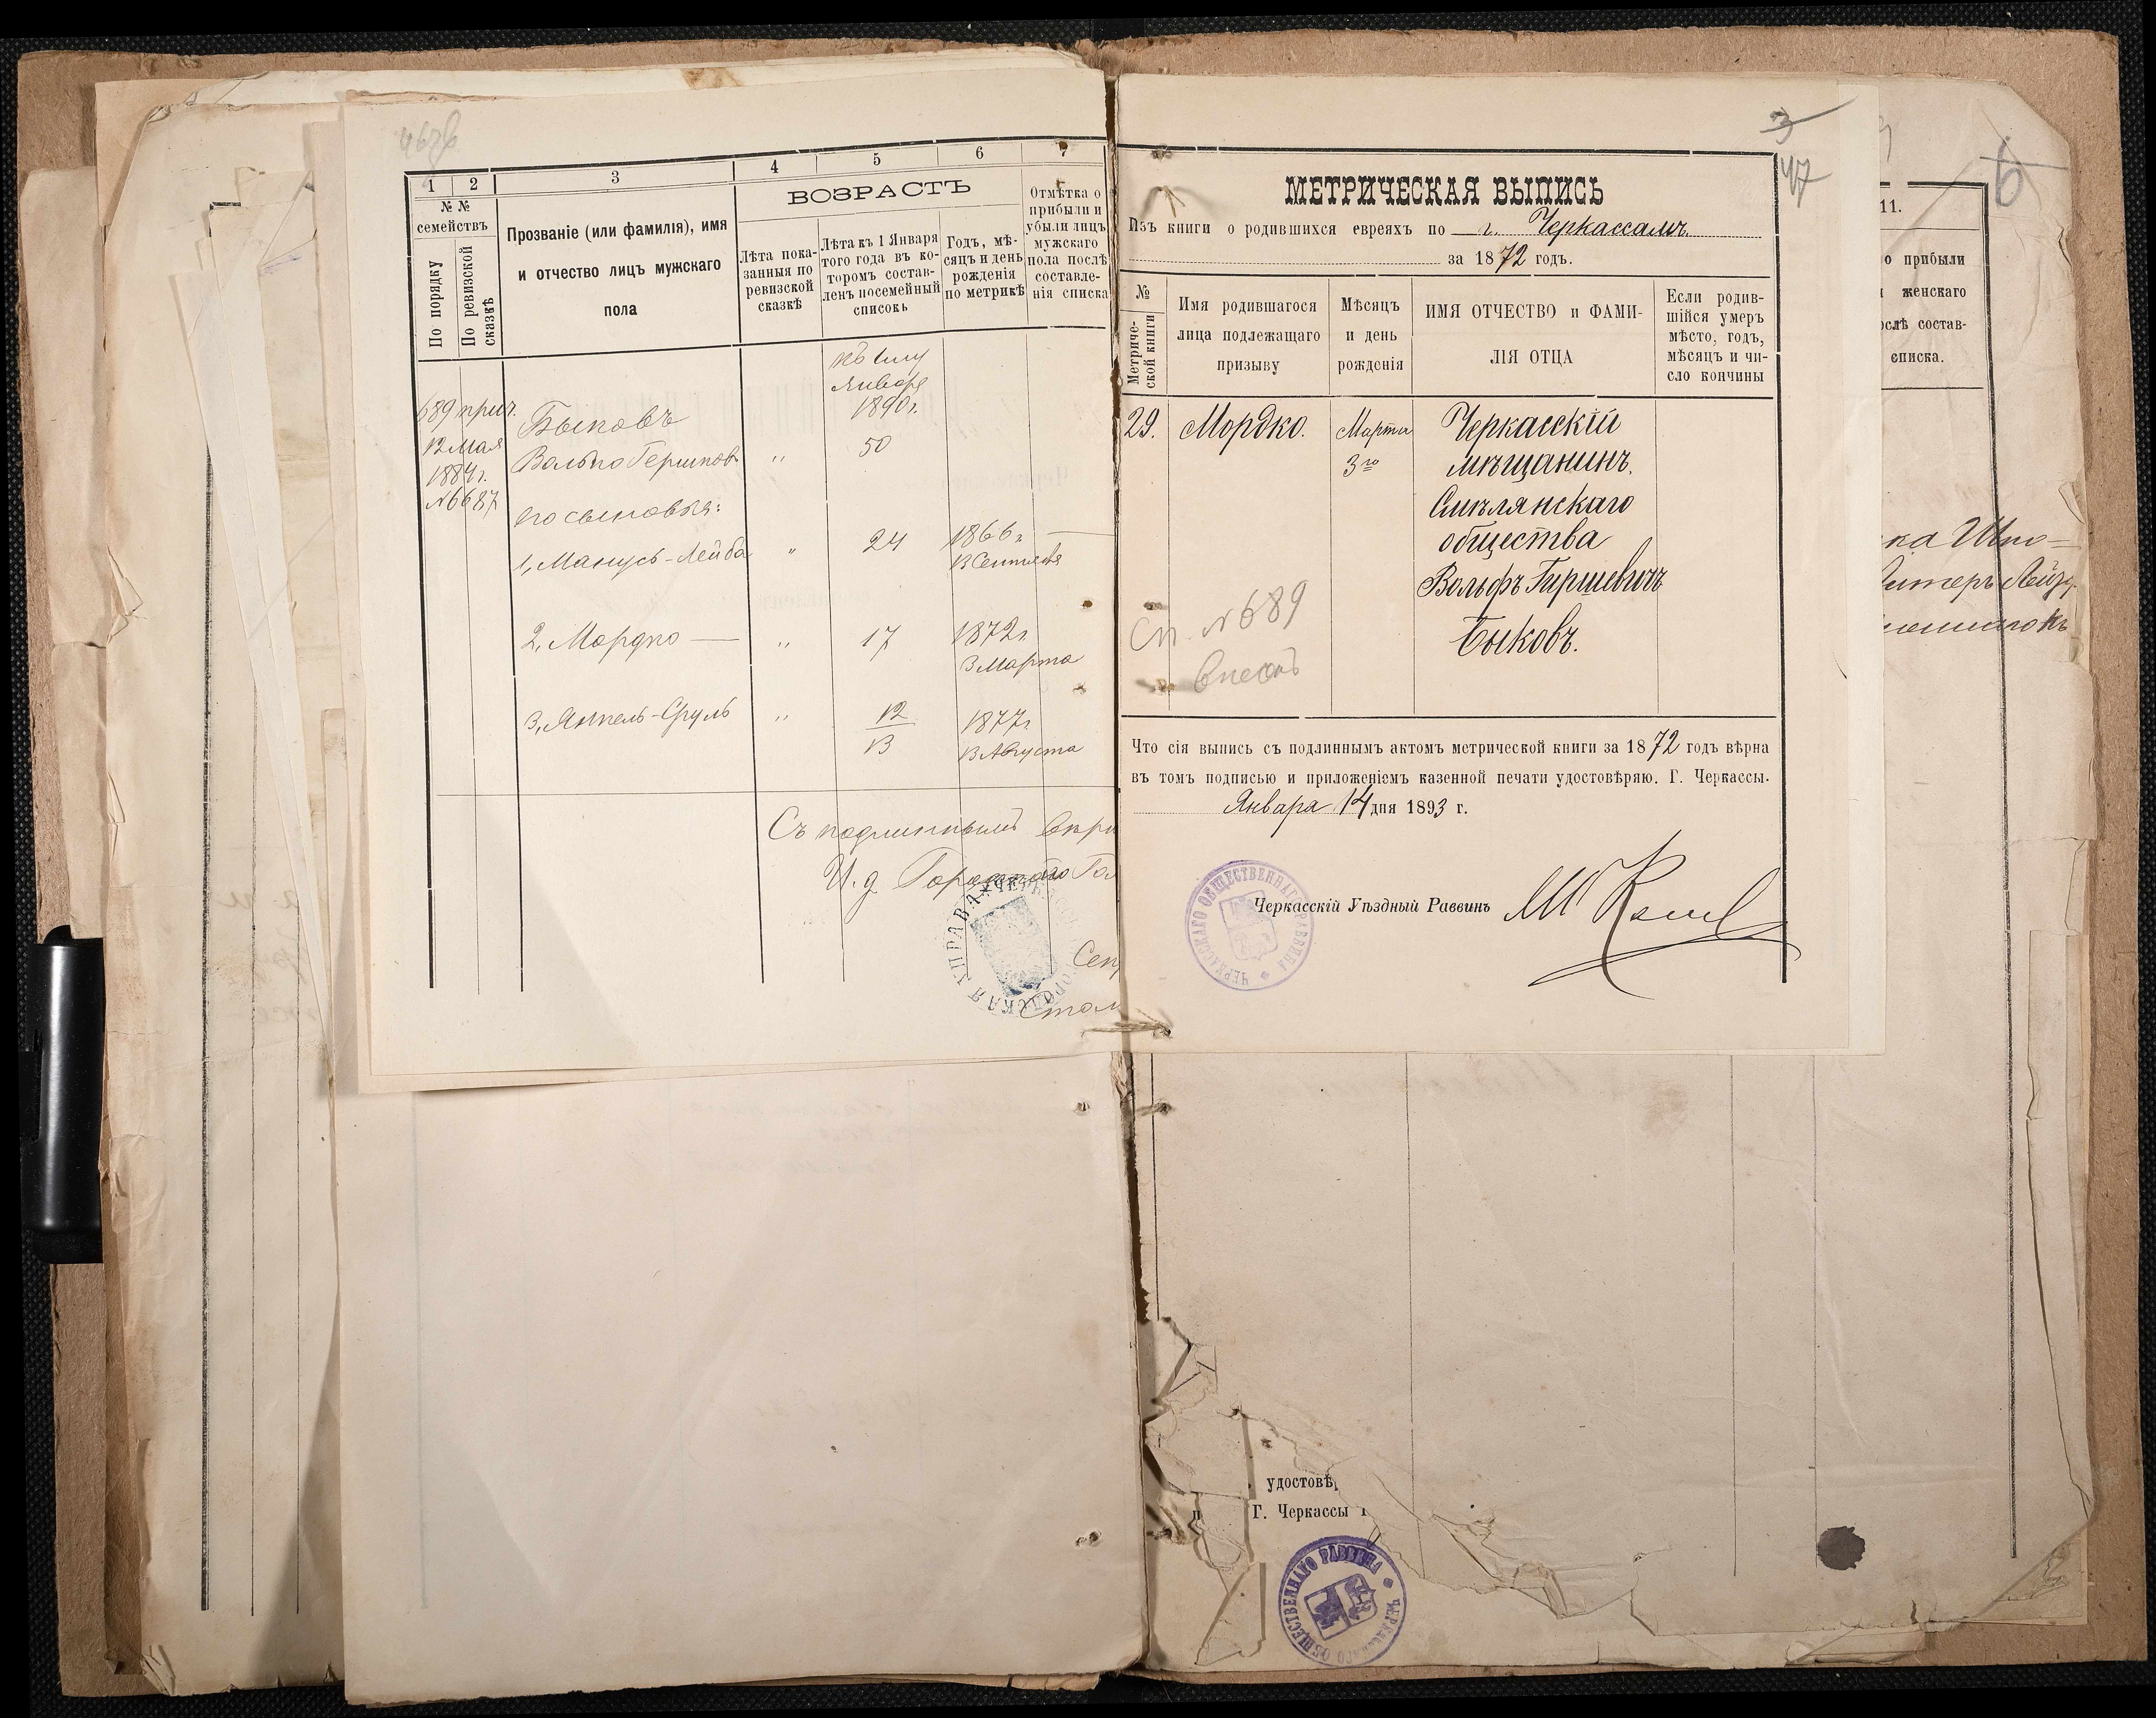 1
2
3
4
5
6
7
№ №
семействъ
По порядку
По ревизской
сказкѣ
Прозваніе (или фамилія), имя
и отчество лицъ мужскаго
пола
ВОЗРАСТЪ
Лѣта пока-
занныя по
ревизской
сказкѣ
Лѣта къ 1 Января
того года въ ко-
торомъ состав-
ленъ посемейный
списокъ
Годъ, мѣ-
сяцъ и день
рожденія
по метрикѣ
Отмѣтка о
прибыли и
убыли лицъ
мужского
пола послѣ
составле-
нія списка
Января
1890 г.
689 прич.
12 Мая
1884 г.
№ 6687
Быковъ
Волько Гершков. " 50
его сыновья:
1, Манусъ-Лейба " 24 1866 г.
13 Сентября
2, Мордко — " 17 1872 г.
3 Марта
3, Янкель-Сруль " 12 1877 г.
13 13 Августа
Съ подлиннымъ вѣрн
И. д. Городского Гол
Сек
Стол
3
47
МЕТРИЧЕСКАЯ ВЫПИСЬ
Изъ книги о родившихся евреяхъ по г. Черкассамъ
за 1872 годъ.
№
Метриче-
ской книги
Имя родившагося
лица подлежащаго
призыву
Мѣсяцъ
и день
рожденія
ИМЯ ОТЧЕСТВО и ФАМИ-
ЛІЯ ОТЦА
Если родив-
шійся умеръ
мѣсто, годъ,
мѣсяцъ и чи-
сло кончины
29. Мордко. Марта Черкасскій
3го мѣщанинъ.
Смѣлянскаго
общества
Вольфъ Гиршевичъ
Быковъ.
Сп. № 689
внесенъ
Что сія выпись съ подлиннымъ актомъ метрической книги за 1872 годъ вѣрна
въ томъ подписью и приложеніемъ казенной печати удостовѣряю. Г. Черкассы.
Января 14 дня 1893 г.
Черкасскій Уѣздный Раввинъ
ЧЕРКАССКАГО ОБЩЕСТВЕННАГО РАВВИНА
6
11.
о прибыли
женскаго
ослѣ состав-
списка.
удостовѣр
Г. Черкассы
ЧЕРКАССКАГО ОБЩЕСТВЕННАГО РАВВИНА